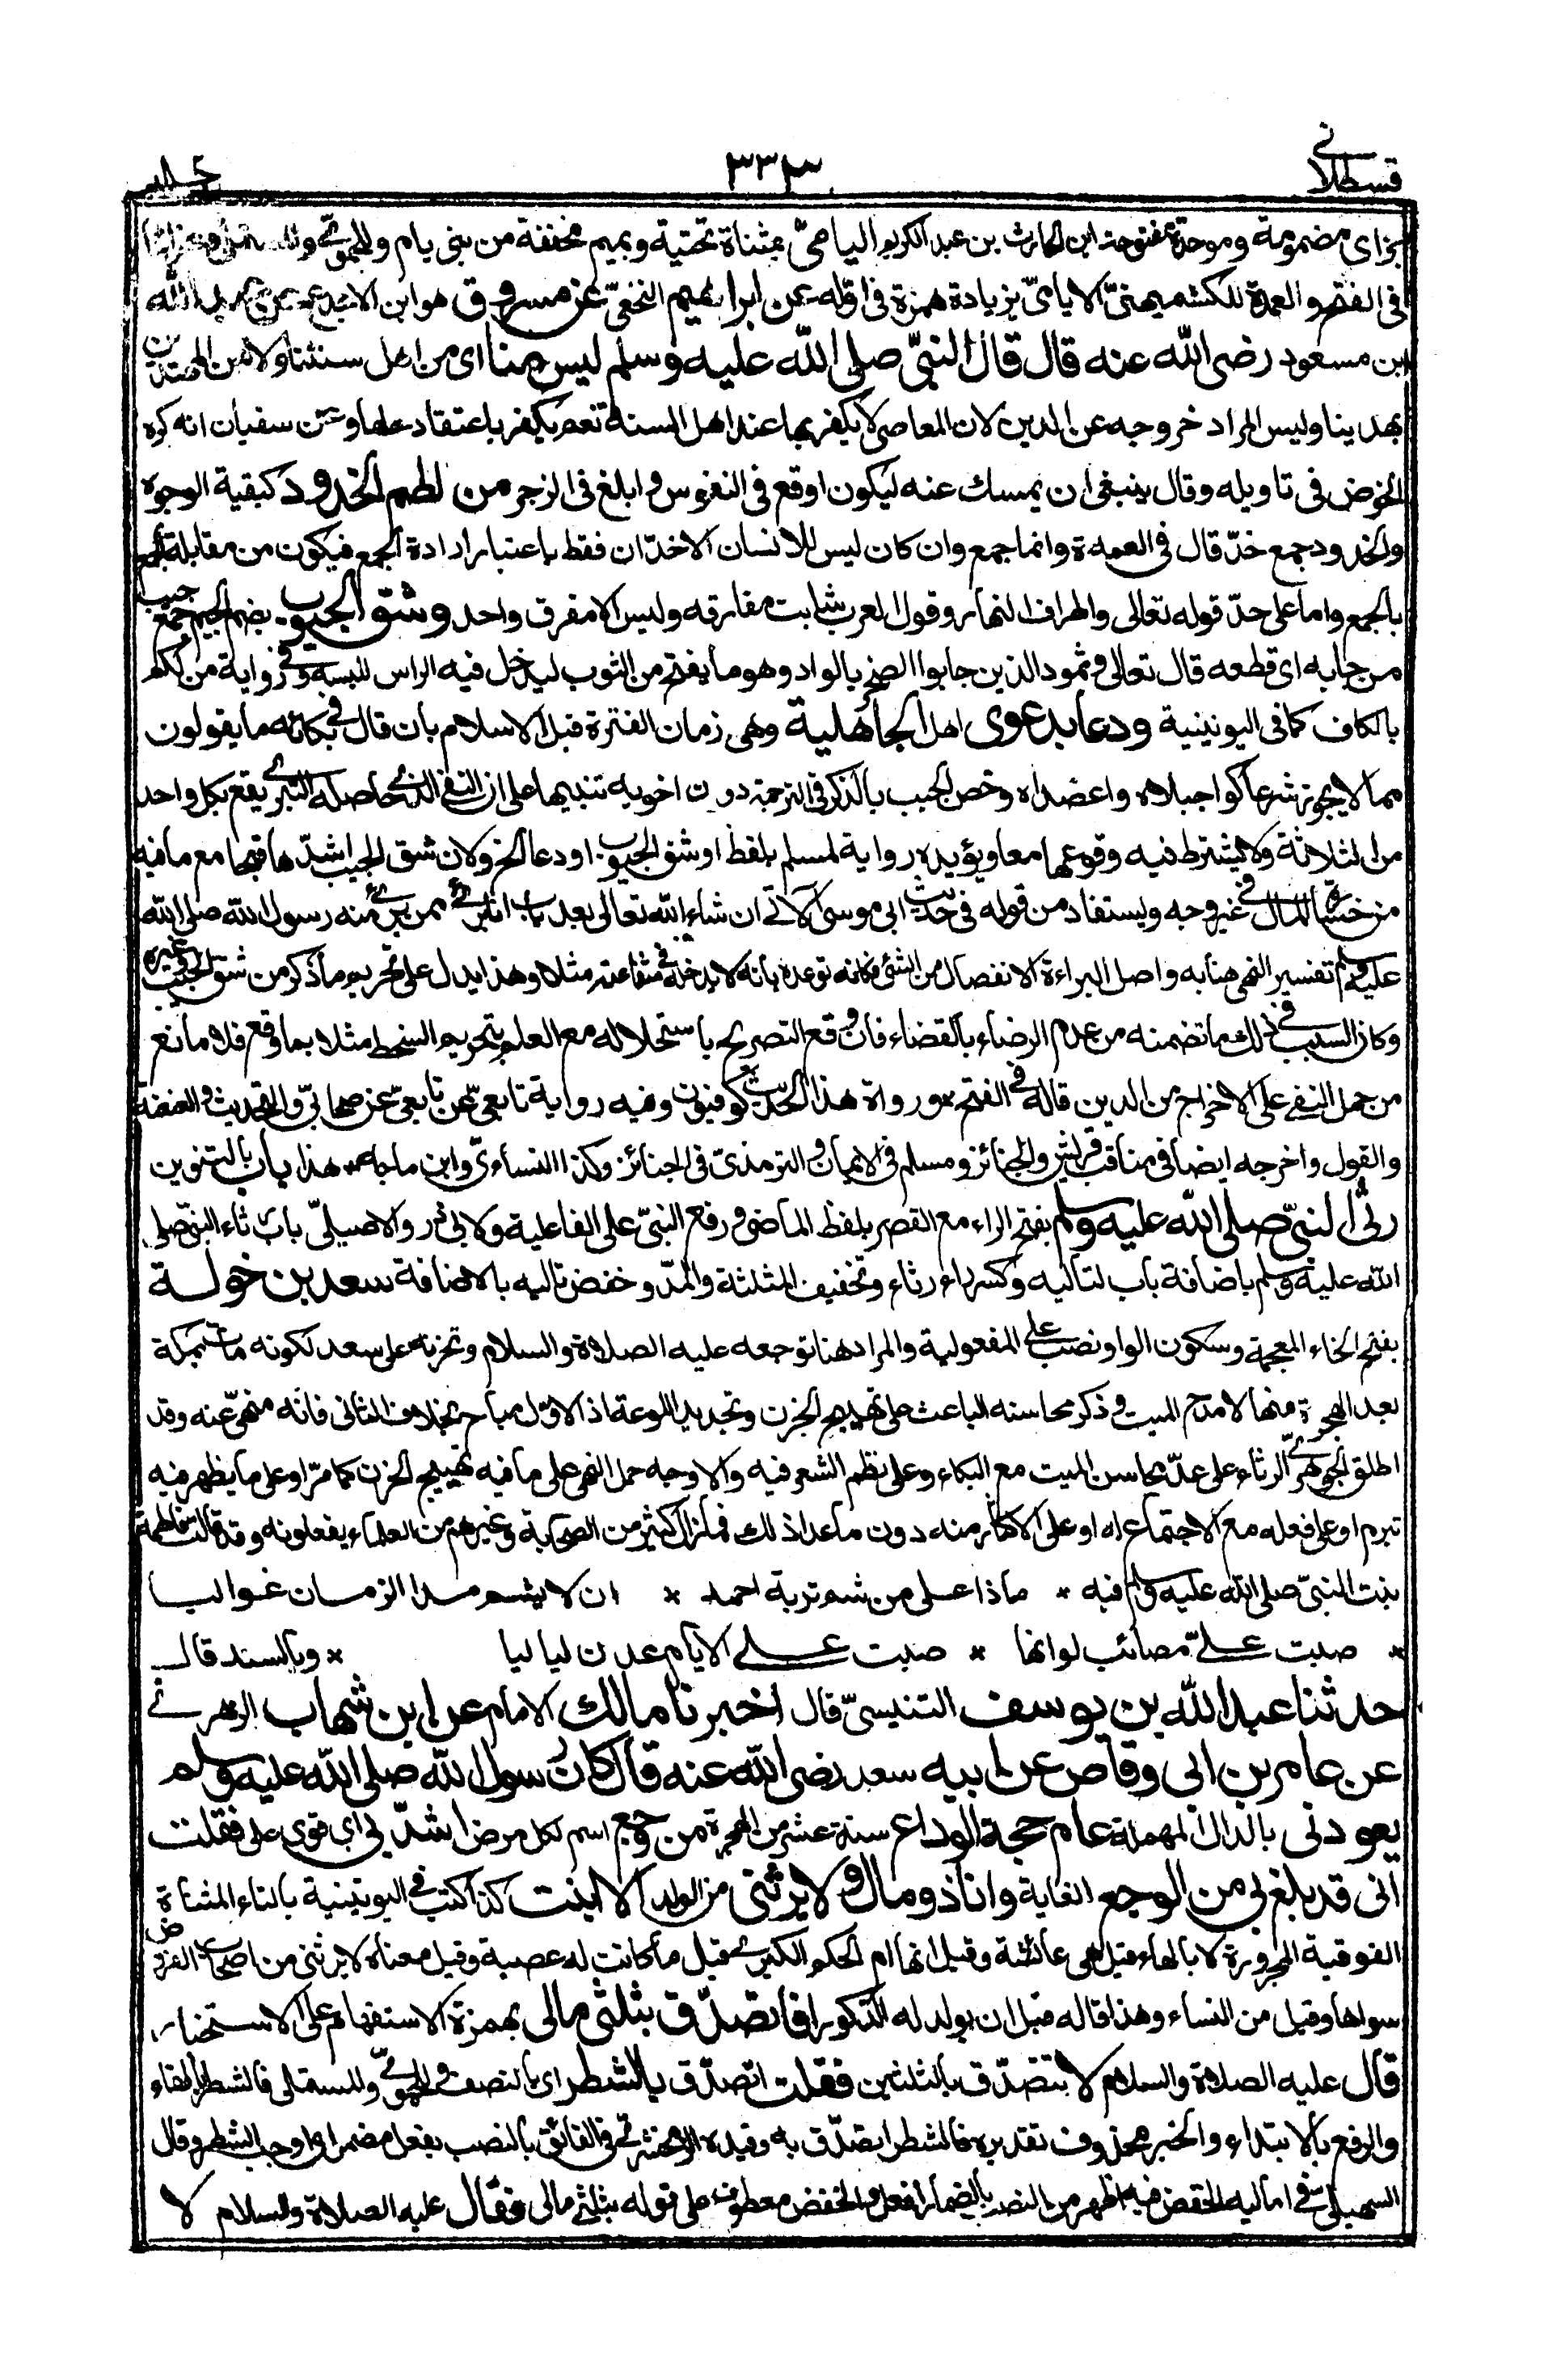 قسطلانى
٣٣٣
جلد
بزاى مضمومة وموحدة مفتوحة ابن الحارث بن عبد الكريم اليامىّ بمثناة تحتية وبميم مخففة من بنى يام وللحموىّ
فى الفتح والعمدة للكشميهنىّ الايامىّ بزيادة همزة فى اوّله عن ابراهيم النخعىّ عن مسروق هو ابن الاجدع عن عبد الله
ابن مسعود رضى الله عنه قال قال النبىّ صلى الله عليه وسلم ليس منا اى من اهل سنتنا ولا من المهتدين
بهدينا وليس المراد خروجه عن الدين لان المعاصى لا يكفر بها عند اهل السنة نعم يكفر باعتقاد حلها وعن سفيان انه كره
الخوض فى تاويله وقال ينبغى ان يمسك عنه ليكون اوقع فى النفوس وابلغ فى الزجر من لطم الخدود كبقية الوجوه
والخدود جمع خدّ قال فى العمدة وانما جمع وان كان ليس للانسان الا خدّان فقط باعتبار ارادة الجمع فيكون من مقابلة الجمع
بالجمع واما على حدّ قوله تعالى واطراف النهار وقول العرب شابت مفارقه وليس الا مفرق واحد وشق الجيوب بضم الجيم جمع جيب
من جابه اى قطعه قال تعالى وثمود الذين جابوا الصخر بالواد وهو ما يفتح من الثوب ليدخل فيه الراس للبسه وفى رواية من لكم
بالكاف كما فى اليونينية ودعا بدعوى اهل الجاهلية وهى زمان الفترة قبل الاسلام بان قال فى بكائه ما يقولون
مما لا يجوز شرعا كواجبلاه واعضداه وخص الجيب بالذكر فى الترجمة دون اخويه تنبيها على ان النفى الذى حاصله التبرى يقع بكل واحد
من الثلاثة ولا يشترط فيه وقوعها معا ويؤيده رواية لمسلم بلفظ او شق الجيوب او دعا الخ ولان شق الجيب اشدّها قبحا مع ما فيه
من خسارة المال فى غير وجه ويستفاد من قوله فى حديث ابى موسى الآتى ان شاء الله تعالى بعد باب انا برئ ممن برئ منه رسول الله صلى الله
عليه وسلم تفسير النهى هنا به واصل البراءة الانفصال من الشئ فكانه توعده بانه لا يدخله فى شفاعته مثلا وهذا يدل على تحريم ما ذكر من شق الجيب وغيره
وكان السبب فى ذلك ما تضمنه من عدم الرضاء بالقضاء فان وقع التصريح باستحلاله مع العلم بتحريم السخط مثلا بما وقع فلا مانع
من حمل النفى على الاخراج من الدين قاله فى الفتح ورواة هذا الحديث كوفيون وفيه رواية تابعىّ عن تابعىّ عن صحابىّ والتحديث والعنعنة
والقول واخرجه ايضا فى مناقب قريش والجنائز ومسلم فى الايمان والترمذىّ فى الجنائز وكذا النساءىّ وابن ماجه هذا باب بالتنوين
رثى النبىّ صلى الله عليه وسلم بفتح الراء مع القصر بلفظ الماضى ورفع النبىّ على الفاعلية ولابى ذر والاصيلىّ باب رثاء النبىّ صلى
الله عليه وسلم باضافة باب لتاليه وكسر راء رثاء وتخفيف المثلثة والمدّ وخفض تاليه بالاضافة سعد بن خولة
بفتح الخاء المعجمة وسكون الواو ونصب على المفعولية والمراد هنا توجعه عليه الصلاة والسلام وتحزنه على سعد لكونه مات بمكة
بعد الهجرة منها لا مدح الميت وذكر محاسنه الباعث على تهييج الحزن وتجديد اللوعة اذ الاوّل مباح بخلاف الثانى فانه منهىّ عنه وقد
اطلق الجوهرىّ الرثاء على عدّ محاسن الميت مع البكاء وعلى نظم الشعر فيه والاوجه حمل النهى على ما فيه تهييج الحزن كما مرّ او على ما يظهر فيه
تبرم او على فعله مع الاجتماع له او على الاكثار منه دون ما عدا ذلك فما زال كثير من الصحابة وغيرهم من العلماء يفعلونه وقد قالت فاطمة
بنت النبىّ صلى الله عليه وسلم فيه * ماذا على من شم تربة احمد * ان لا يشم مدا الزمان غواليا
* صبت علىّ مصائب لو انها * صبت على الايام عدن لياليا * وبالسند قال
حدثنا عبد الله بن يوسف التنيسىّ قال اخبرنا مالك الامام عن ابن شهاب الزهرى
عن عامر بن ابى وقاص عن ابيه سعد رضى الله عنه قال كان رسول الله صلى الله عليه وسلم
يعودنى بالدال المهملة عام حجة الوداع سنة عشر من الهجرة من وجع اسم لكل مرض اشتدّ بى اى قوى على فقلت
انى قد بلغ بى من الوجع الغاية وانا ذو مال ولا يرثنى من الولد الا ابنت كذا كتب فى اليونينية بالتاء المثناة
الفوقية المجرورة لا بالهاء قيل هى عائشة وقيل انها ام الحكم الكبرى قيل ما كانت له عصبة وقيل معناه لا يرثنى من اصحاب الفروض
سواها وقيل من النساء وهذا قاله قبل ان يولد له الذكور افاتصدّق بثلثى مالى بهمزة الاستفهام على الاستخبار
قال عليه الصلاة والسلام لا تتصدّق بالثلثين فقلت اتصدّق بالشطر اى بالنصف وللحموىّ وللمستملى فالشطر بالفاء
والرفع بالابتداء والخبر محذوف تقديره فالشطر اتصدّق به وقيده الزمخشرىّ فى الفائق بالنصب بفعل مضمر اى اوجب الشطر وقال
السهيلىّ فى اماليه الخفض فيه اظهر من النصب باضمار افعل والخفض معطوف على قوله بثلثى مالى فقال عليه الصلاة والسلام لا